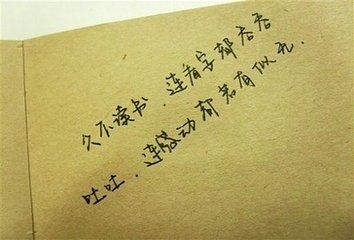 久不读书，连看字都吞吞
吐吐，连感动都若有似无。